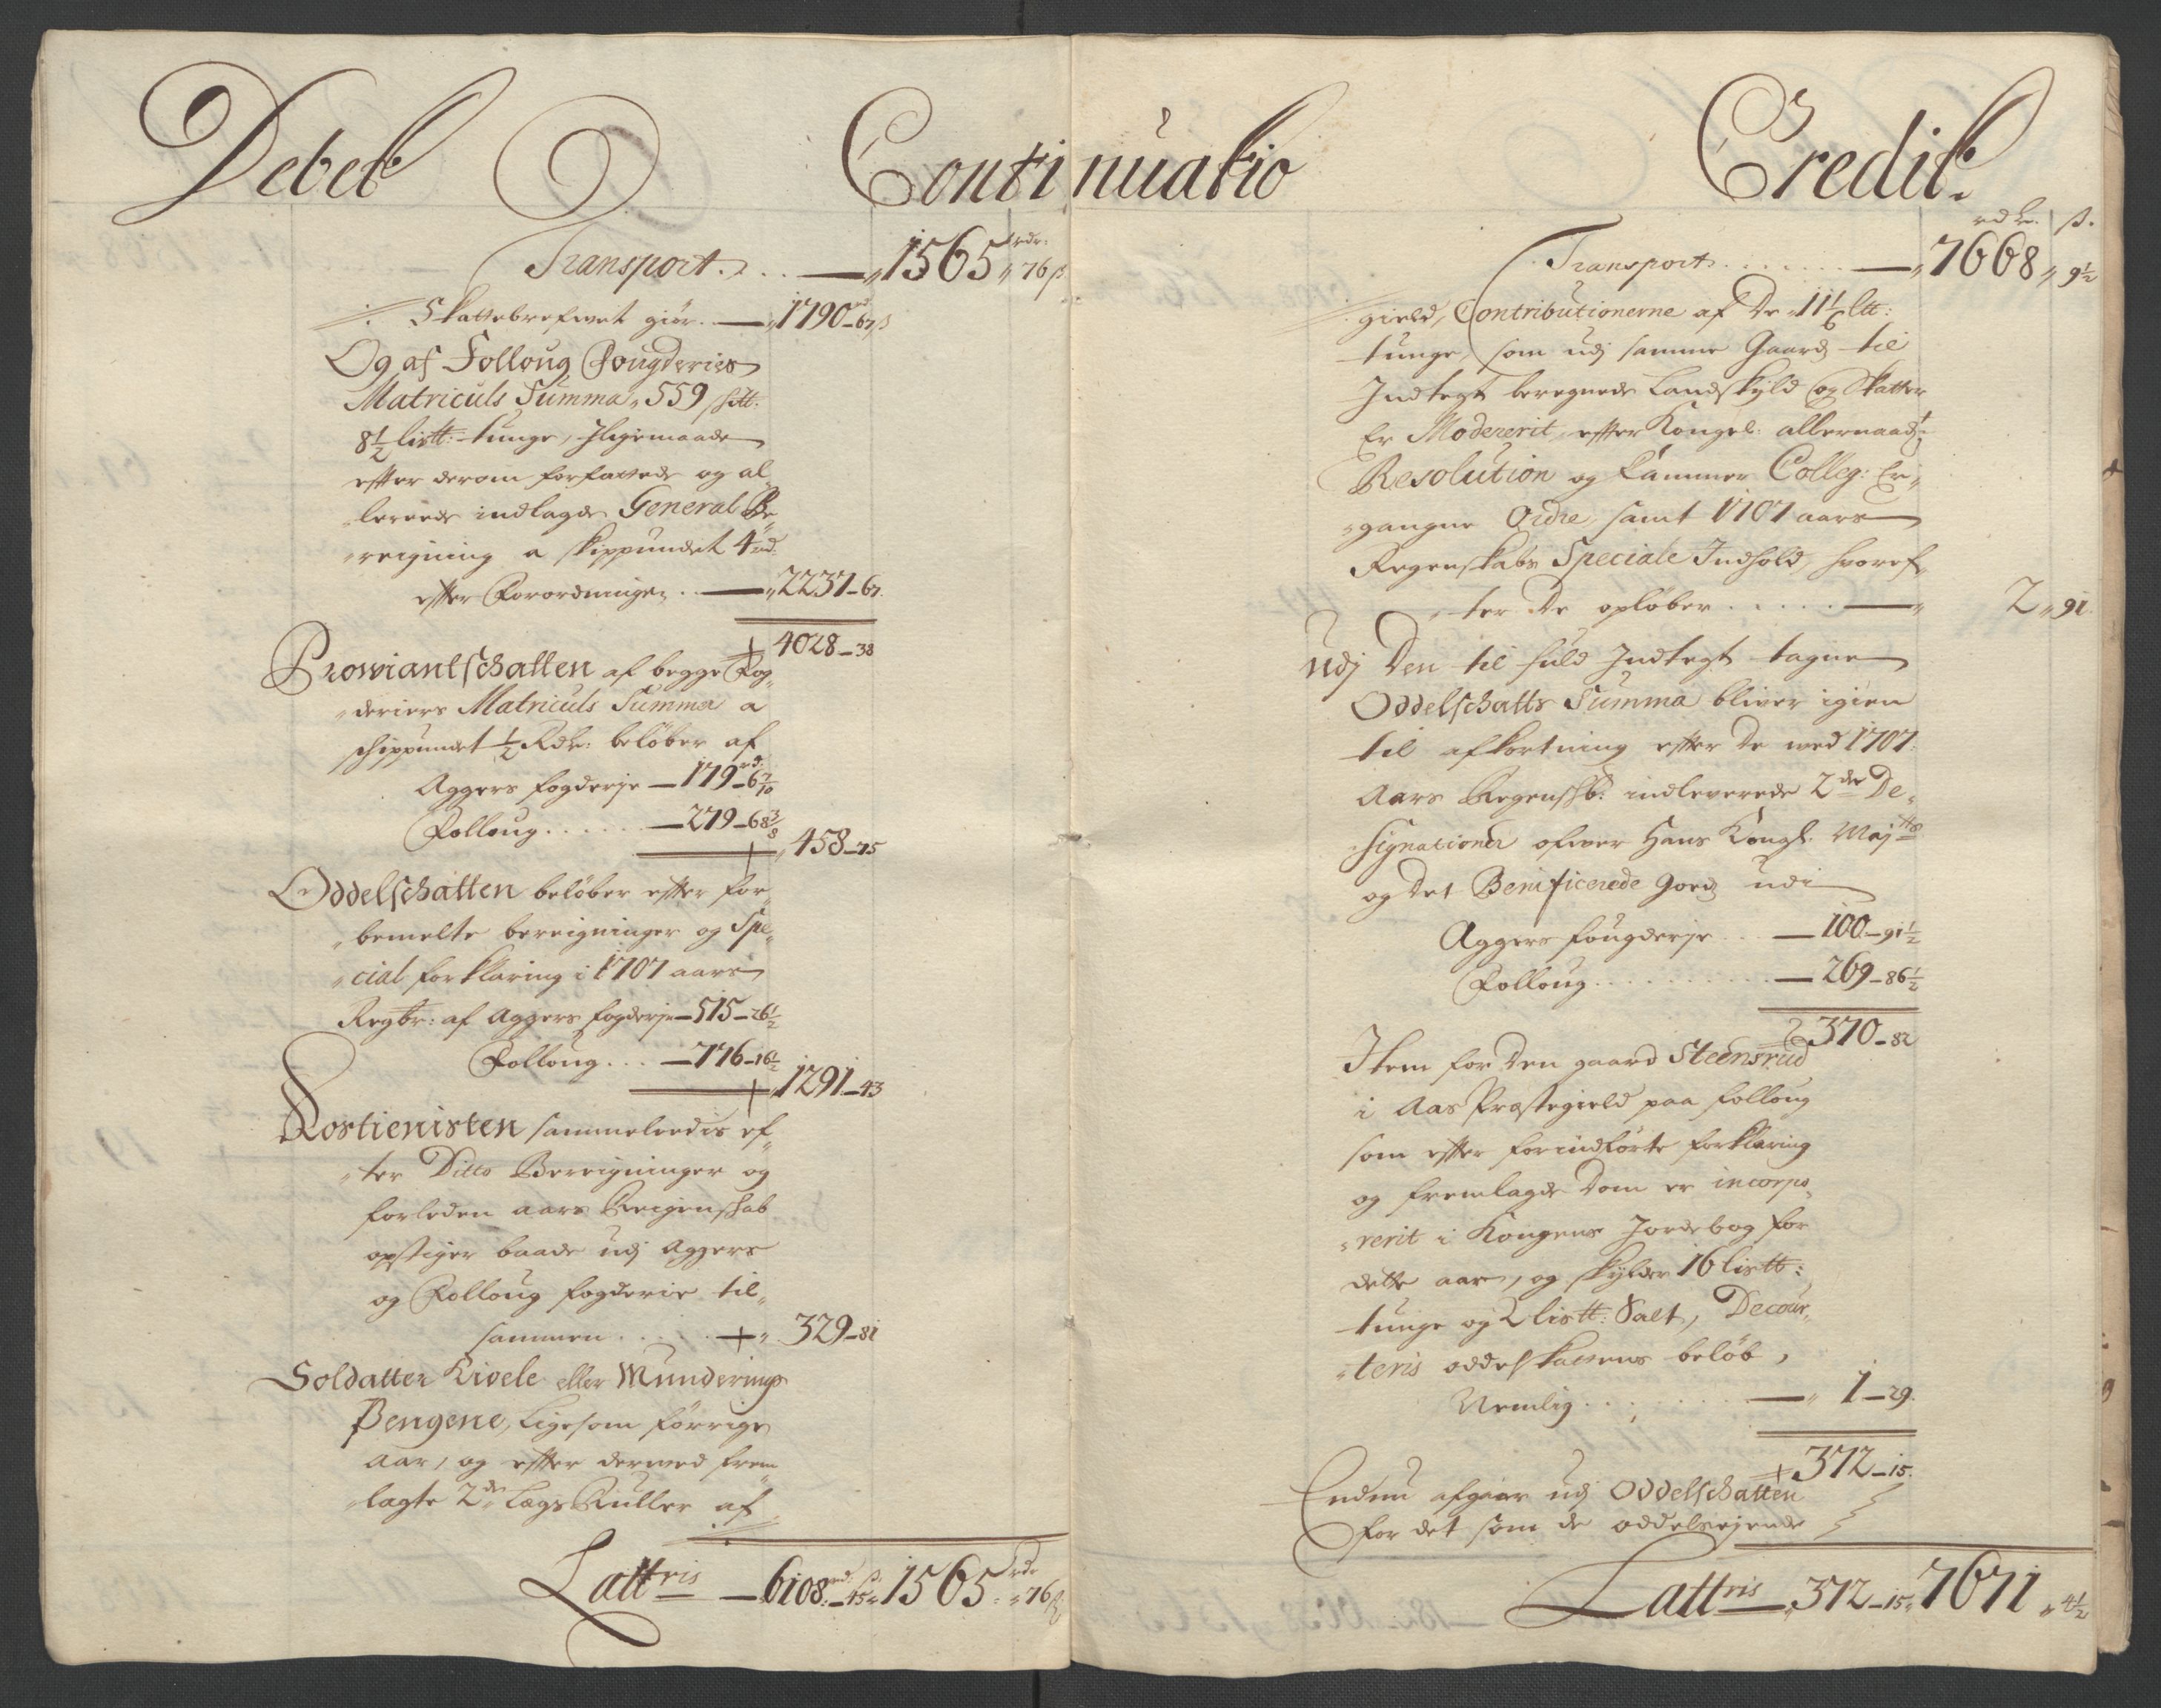 Debet Continuatio Credit.
Transport. . . — 1565 rdr: „ 76 ß
Skattebrefwet giör. — 1790 rd – 67 ß
Og af Folloug Fougderies
Matriculs Summa „ 559 sktt.
8½ listt: tunge, Jligemaade
effter derom forfattede og al„
„lereede indlagde General Be„
„reigning a skippundet 4 rd.
effter Forordningen. — 2237 – 67.
4028 – 38
Prowiantschatten af begge Fog„
„deriers Matriculs Summa a
schippundet ½ Rdr: beløber af
Aggers fogderje — 179 rd. – 6 7/10
Folloug. . . . . — 279 – 68 3/8
458 – 75
Oddelschatten beløber effter for„
„bemelte bereigninger og Spe„
„cial forklaring i 1707 aars
Regbr: af Aggers fogderje — 515 – 26½
Folloug. . . — 776 – 16½
1291 – 43
Rostienisten sammeleedis ef„
„ter Ditto Bereigninger og
forleden aars Reigenskab
opstiger baade udj Aggers
og Folloug fogderie til„
sammen . . . . . 329 – 81
Soldatter Kioele eller Munderings
Pengene, Ligesom förrige
Aar, og effter dermed frem
„lagte 2de Lægs Ruller af
Lattris — 6108 rd: – 45 ß: 1565 rdr „ 76 ß
rdr. ß.
Transport . . . . . . . — 7668 „ 9½
gield, Contributionerne af De 11 1/6 Ltt:
tunge, som udj samme Gaard til
Indtegt beregnede Landskyld og Skatter
Er Modererit, effter Kongel. allernaadt:
Resolution og Cammer Colleg: Er„
„gangne Ordre, samt 1707 aars
Regenskabs Speciale Indhold, hworef„
„ter De opløber . . . . . — 2 „ 91
Udj Den til fuld Indtegt tagne
Oddelschatts Summa bliver igien
til afkortning effter de med 1707
Aars Regenskb: indleverede 2de De„
„signationer ofwer Hans Kongl. Majtts
og det Benificerede Goedz udi
Aggers fougderje . . . — 100 – 91½
Folloug . . . . . . . . . — 269 – 86½
370 – 82
Item for Den gaard Steensrud
i Aas Præstegield paa Folloug
som effter forindførte forklaring
og fremlagde Dom er incorpo„
„rerit i Kongens Jordebog for
dette aar, og skylder 16 listt:
tunge og 2 listt: Salt, Decour„
„teris oddelskattens beløb,
Nemlig . . . . . . . . — 1 – 29.
372 – 15.
Endnu afgaar udj Oddelschatten
for det som de oddelseiende
Lattris — 372 – 15 „ 7671 „ 4½